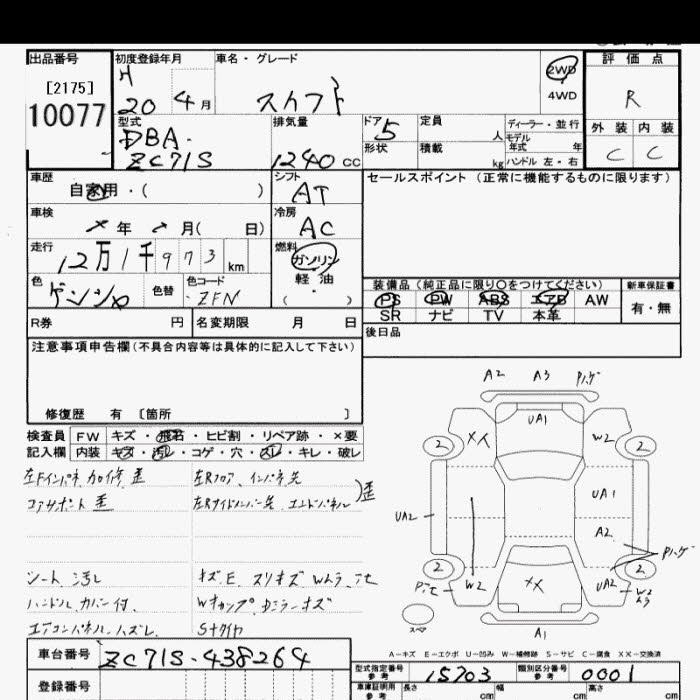 出品番号
[2175]
10077
初度登録年月
H
20 4 月
車名・グレード
スイフト
2WD
4WD
評価点
R
外装 内装
C C
型式
DBA-
ZC71S
排気量
1240 cc
ドア 5
形状
定員 人
積載 kg
ディーラー・並行
モデル
年式 年
ハンドル 左・右
車歴
自家用・( )
シフト
AT
セールスポイント (正常に機能するものに限ります)
車検
年 月( 日)
冷房
AC
走行
12万1千973 km
燃料
ガソリン
軽油
( )
色
ゲンショク
色替
色コード
ZFN
装備品(純正品に限り○をつけてください)
PS PW ABS エアB AW
SR ナビ TV 本革
新車保証書
有・無
R券 円
名変期限 月 日
後日品
注意事項申告欄(不具合内容等は具体的に記入して下さい)
修復歴 有 〔箇所 〕
検査員
記入欄
FW キズ・飛石・ヒビ割・リペア跡・×要
内装 キズ・汚レ・コゲ・穴・スレ・キレ・破レ
左Fインパネ 加修 歪
コアサポート 歪
左Rフロア、インパネ先
左Rサイドメンバー先 エンドパネル )歪
シート 汚し
ハンドル カバー付
エアコンパネル ハズレ
キズ、E、スリキズ Wムラ
Wキャップ Dミラーキズ
Sタイヤ
A2 A3 Pハゲ
UA1
XX
W2
2
2
UA1
UA2
A2
Pハゲ
2
2
W2
XX
UA2
W2
ムラ
スペア
A1
A－キズ E－エクボ U－凹み W－補修跡 S－サビ C－腐食 XX－交換済
車台番号 ZC71S-438264
登録番号
型式指定番号
参考
15703
類別区分番号
参考
0001
車庫証明用
参考
長さ cm
幅 cm
高さ cm